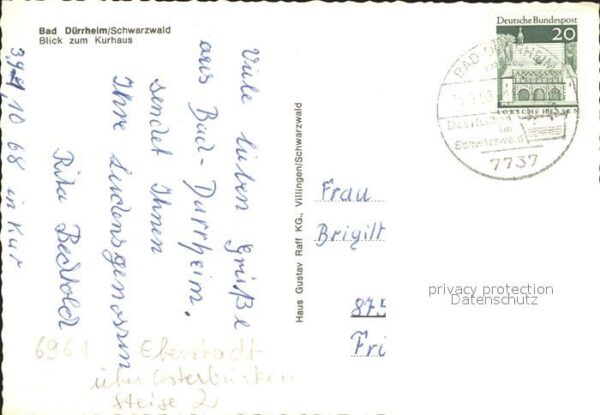 Bad Dürrheim/Schwarzwald
Blick zum Kurhaus
Viele lieben Grüße
aus Bad-Dürrheim.
sendet Ihnen
Ihre Leidensgenossin
Rita Bechtold
10 68 in Kur
6961 Eberstadt
über Osterburken
Haus Gustav Raff KG., Villingen/Schwarzwald
Deutsche Bundespost
20
LORSCH HESSEN
BAD DÜRRHEIM
im
Schwarzwald
7737
Frau
Brigitt
875
Fri
privacy protection
Datenschutz